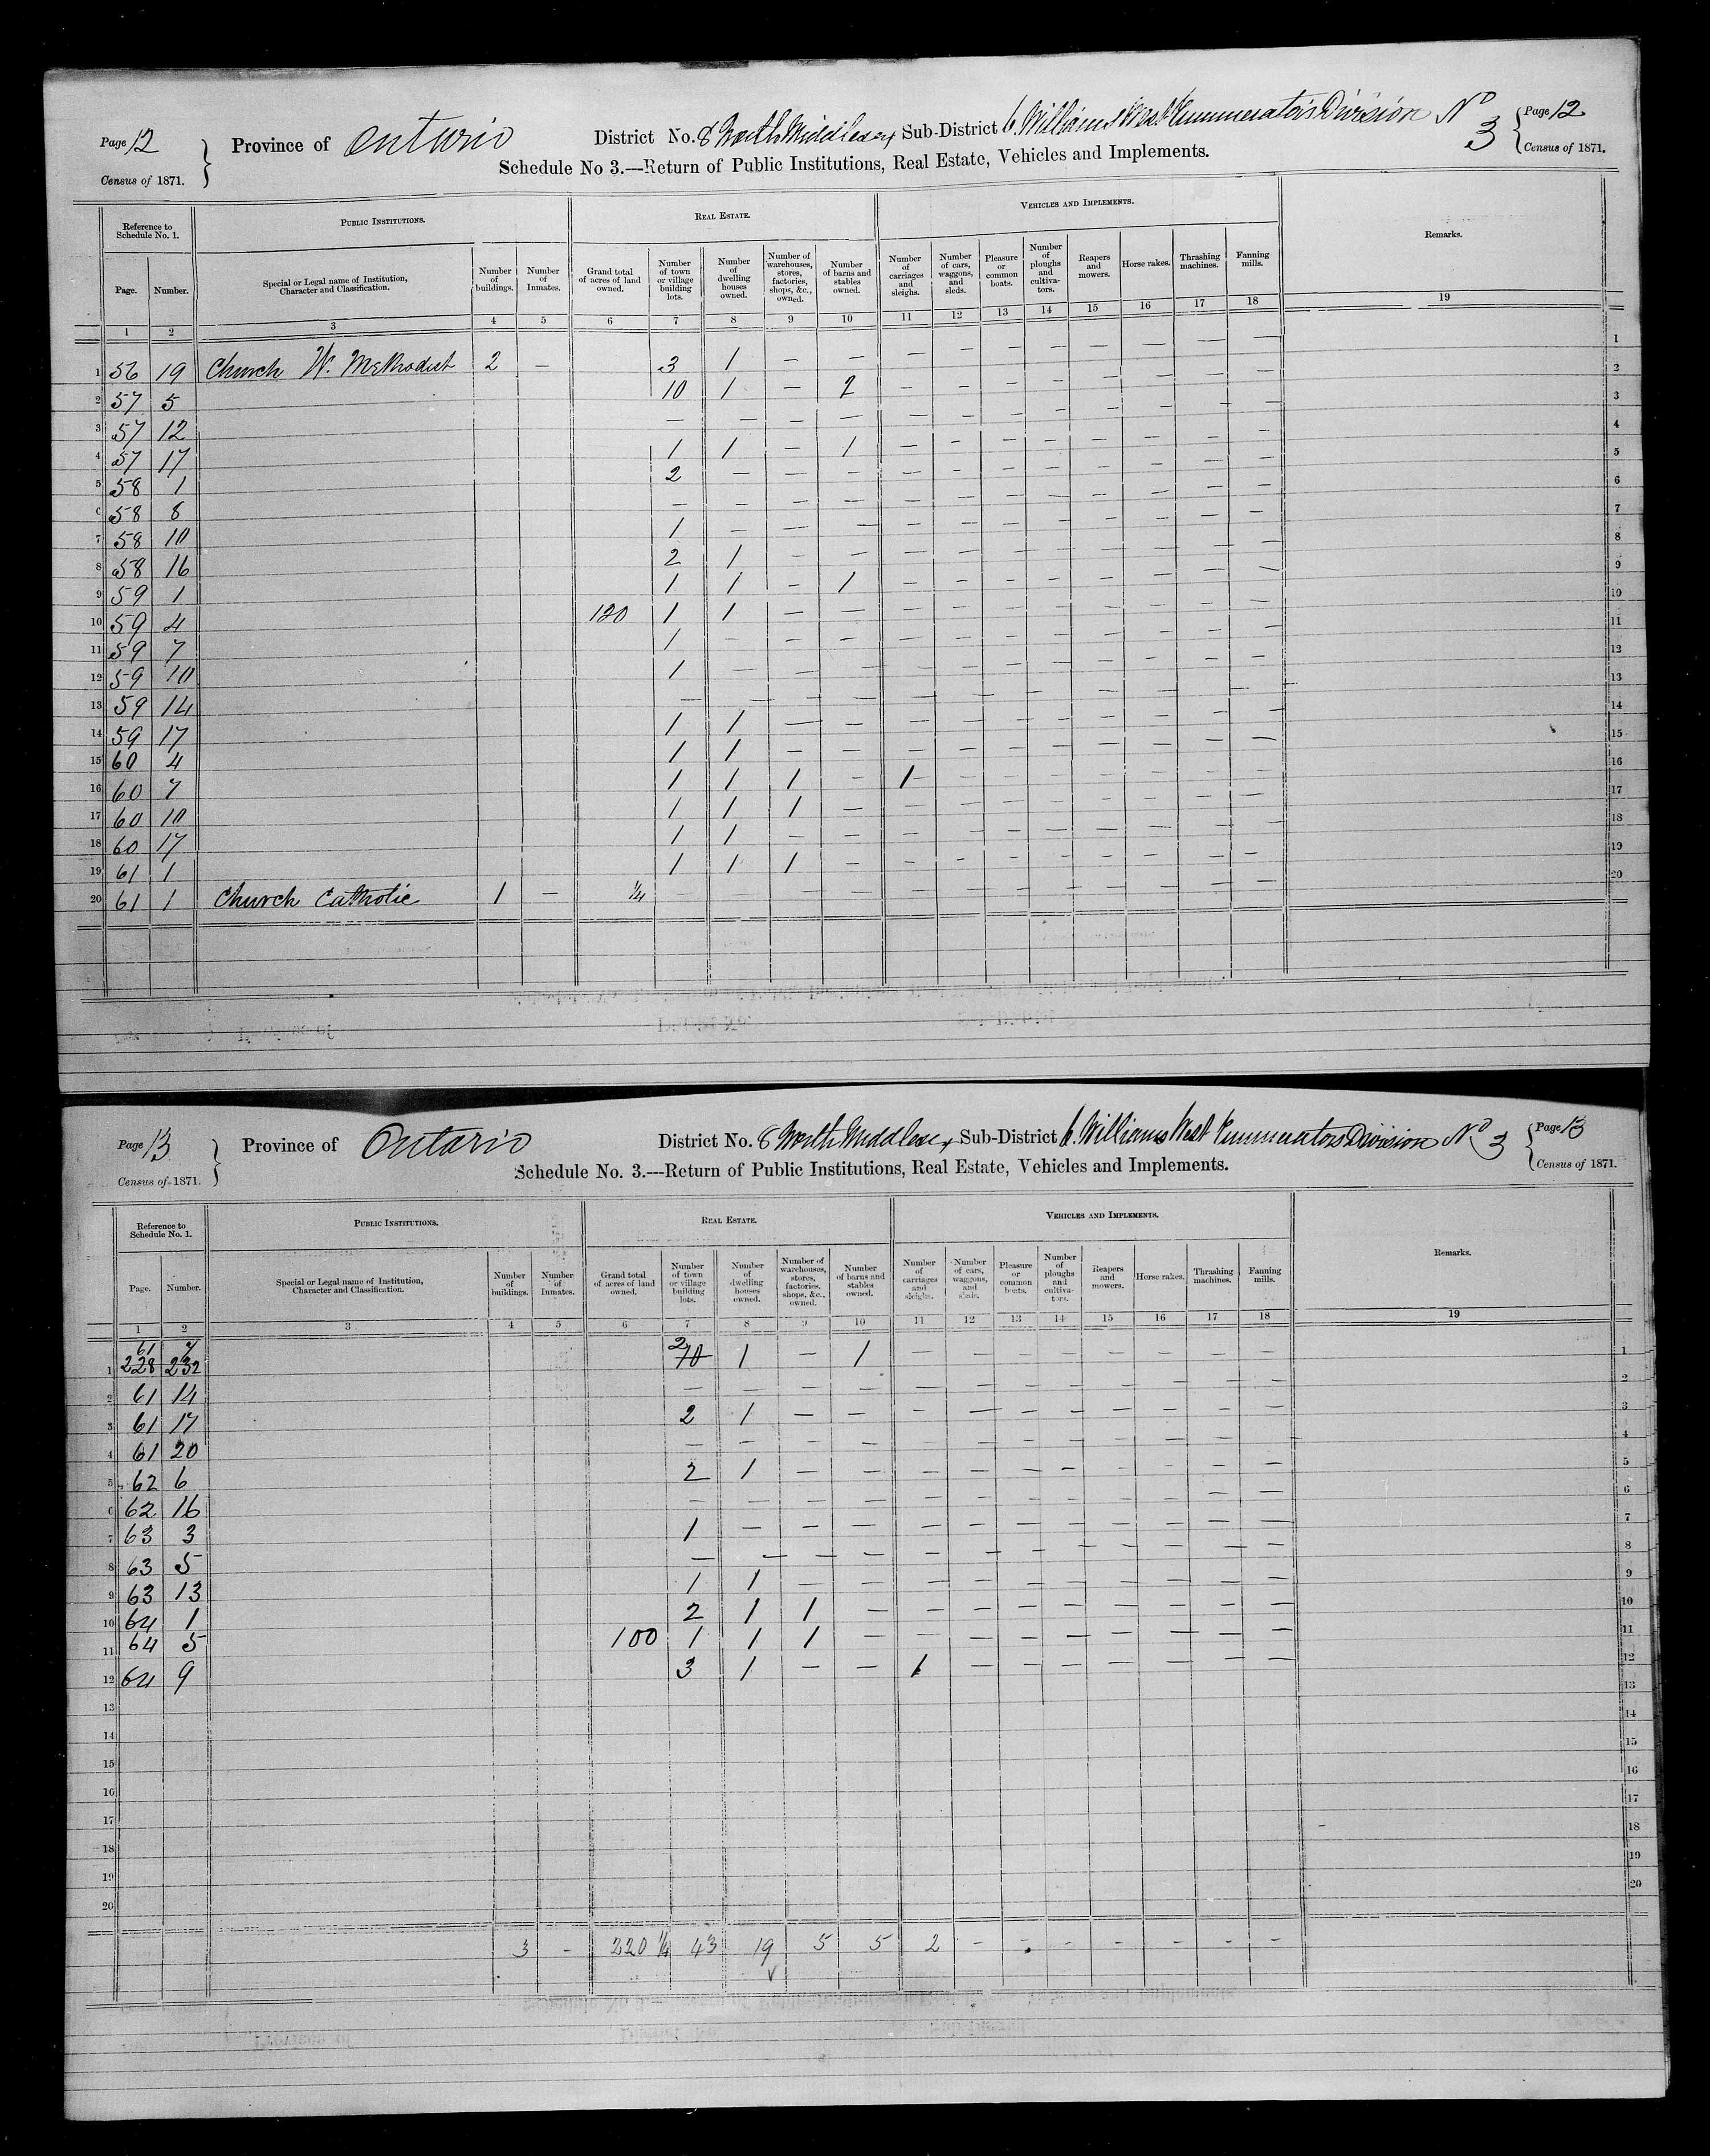 Page 12 Province of Ontario District No. 8 North Middlesex Sub-District 6. Williams West Enumerators Division No 3 Page 12
Census of 1871. Census of 1871.
Schedule No 3.---Return of Public Institutions, Real Estate, Vehicles and Implements.
Reference to Schedule No. 1. PUBLIC INSTITUTIONS. REAL ESTATE. VEHICLES AND IMPLEMENTS. Remarks.
Page. Number. Special or Legal name of Institution, Character and Classification. Number of buildings. Number of Inmates. Grand total of acres of land owned. Number of town or village building lots. Number of dwelling houses owned. Number of warehouses, stores, factories, shops, &c., owned. Number of barns and stables owned. Number of carriages and sleighs. Number of cars, waggons, and sleds. Pleasure or common boats. Number of ploughs and cultivators. Reapers and mowers. Horse rakes. Thrashing machines. Fanning mills.
1 2 3 4 5 6 7 8 9 10 11 12 13 14 15 16 17 18 19
1 56 19 Church W. Methodist 2 — 3 1 — — — — — — — — — — 1
2 57 5 10 1 — 2 — — — — — — — — 2
3 57 12 — — — — — — — — — — — — 3
4 57 17 1 1 — 1 — — — — — — — — 4
5 58 1 2 — — — — — — — — — — — 5
6 58 8 — — — — — — — — — — — — 6
7 58 10 1 — — — — — — — — — — — 7
8 58 16 2 1 — — — — — — — — — — 8
9 59 1 1 1 — 1 — — — — — — — — 9
10 59 4 120 1 1 — — — — — — — — — — 10
11 59 7 1 — — — — — — — — — — — 11
12 59 10 1 — — — — — — — — — — — 12
13 59 14 — — — — — — — — — — — — 13
14 59 17 1 1 — — — — — — — — — — 14
15 60 4 1 1 — — — — — — — — — — 15
16 60 7 1 1 1 — 1 — — — — — — — 16
17 60 10 1 1 1 — — — — — — — — — 17
18 60 17 1 1 — — — — — — — — — — 18
19 61 1 1 1 1 — — — — — — — — — 19
20 61 1 Church Catholic 1 — 1/4 — — — — — — — — — — — — 20
Page 13 Province of Ontario District No. 8 North Middlesex Sub-District 6. Williams West Enumerators Division No 3 Page 13
Census of 1871. Census of 1871.
Schedule No. 3.---Return of Public Institutions, Real Estate, Vehicles and Implements.
Reference to Schedule No. 1. PUBLIC INSTITUTIONS. REAL ESTATE. VEHICLES AND IMPLEMENTS. Remarks.
Page. Number. Special or Legal name of Institution, Character and Classification. Number of buildings. Number of Inmates. Grand total of acres of land owned. Number of town or village building lots. Number of dwelling houses owned. Number of warehouses, stores, factories, shops, &c., owned. Number of barns and stables owned. Number of carriages and sleighs. Number of cars, waggons, and sleds. Pleasure or common boats. Number of ploughs and cultivators. Reapers and mowers. Horse rakes. Thrashing machines. Fanning mills.
1 2 3 4 5 6 7 8 9 10 11 12 13 14 15 16 17 18 19
61 7 2
1 228 232 10 1 — 1 — — — — — — — — 1
2 61 14 — — — — — — — — — — — — 2
3 61 17 2 1 — — — — — — — — — — 3
4 61 20 — — — — — — — — — — — — 4
5 62 6 2 1 — — — — — — — — — — 5
6 62 16 — — — — — — — — — — — — 6
7 63 3 1 — — — — — — — — — — — 7
8 63 5 — — — — — — — — — — — — 8
9 63 13 1 1 — — — — — — — — — — 9
10 64 1 2 1 1 — — — — — — — — — 10
11 64 5 100 1 1 1 — — — — — — — — — 11
12 64 9 3 1 — — 1 — — — — — — — 12
13 13
14 14
15 15
16 16
17 17
18 18
19 19
20 20
3 - 220 1/4 43 19 5 5 2 - - - - - - -